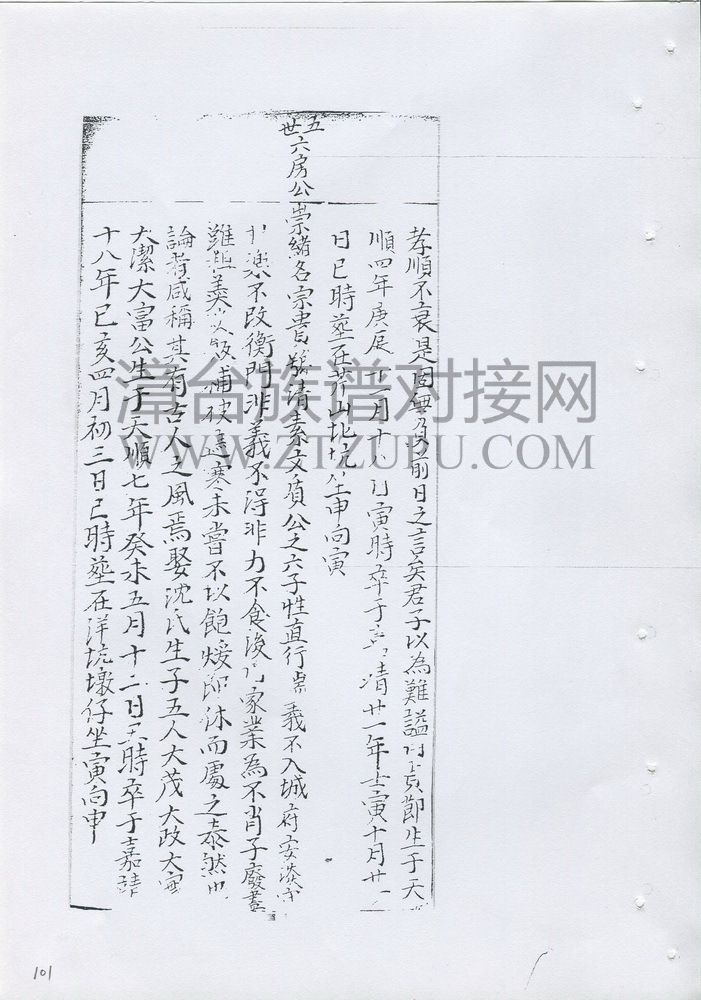 孝順不衰是固無負前日之言矣君子以為難謚貞節生于天
順四年庚辰十二月十八日寅時卒于嘉靖廿一年壬寅十月廿
日巳時塟在芹山北坑坐申向寅
五世
六房公崇緒名宗貴號清素文質公之六子性直行 義不入城府安淡
樂不改衡門非義不淂非力不食後 家業為不肖子廢盡
雖 羮 飯補被 寒未嘗不以飽煖即休而處之泰然也
論者咸稱其有古人之風焉娶沈氏生子五人大茂大政大
大潔大富公生于天順七年癸未五月十二日 時卒于嘉靖
十八年己亥四月初三日巳時塟在洋坑墩仔坐寅向申
漳台族谱对接网
WWW.ZTZUPU.COM
101